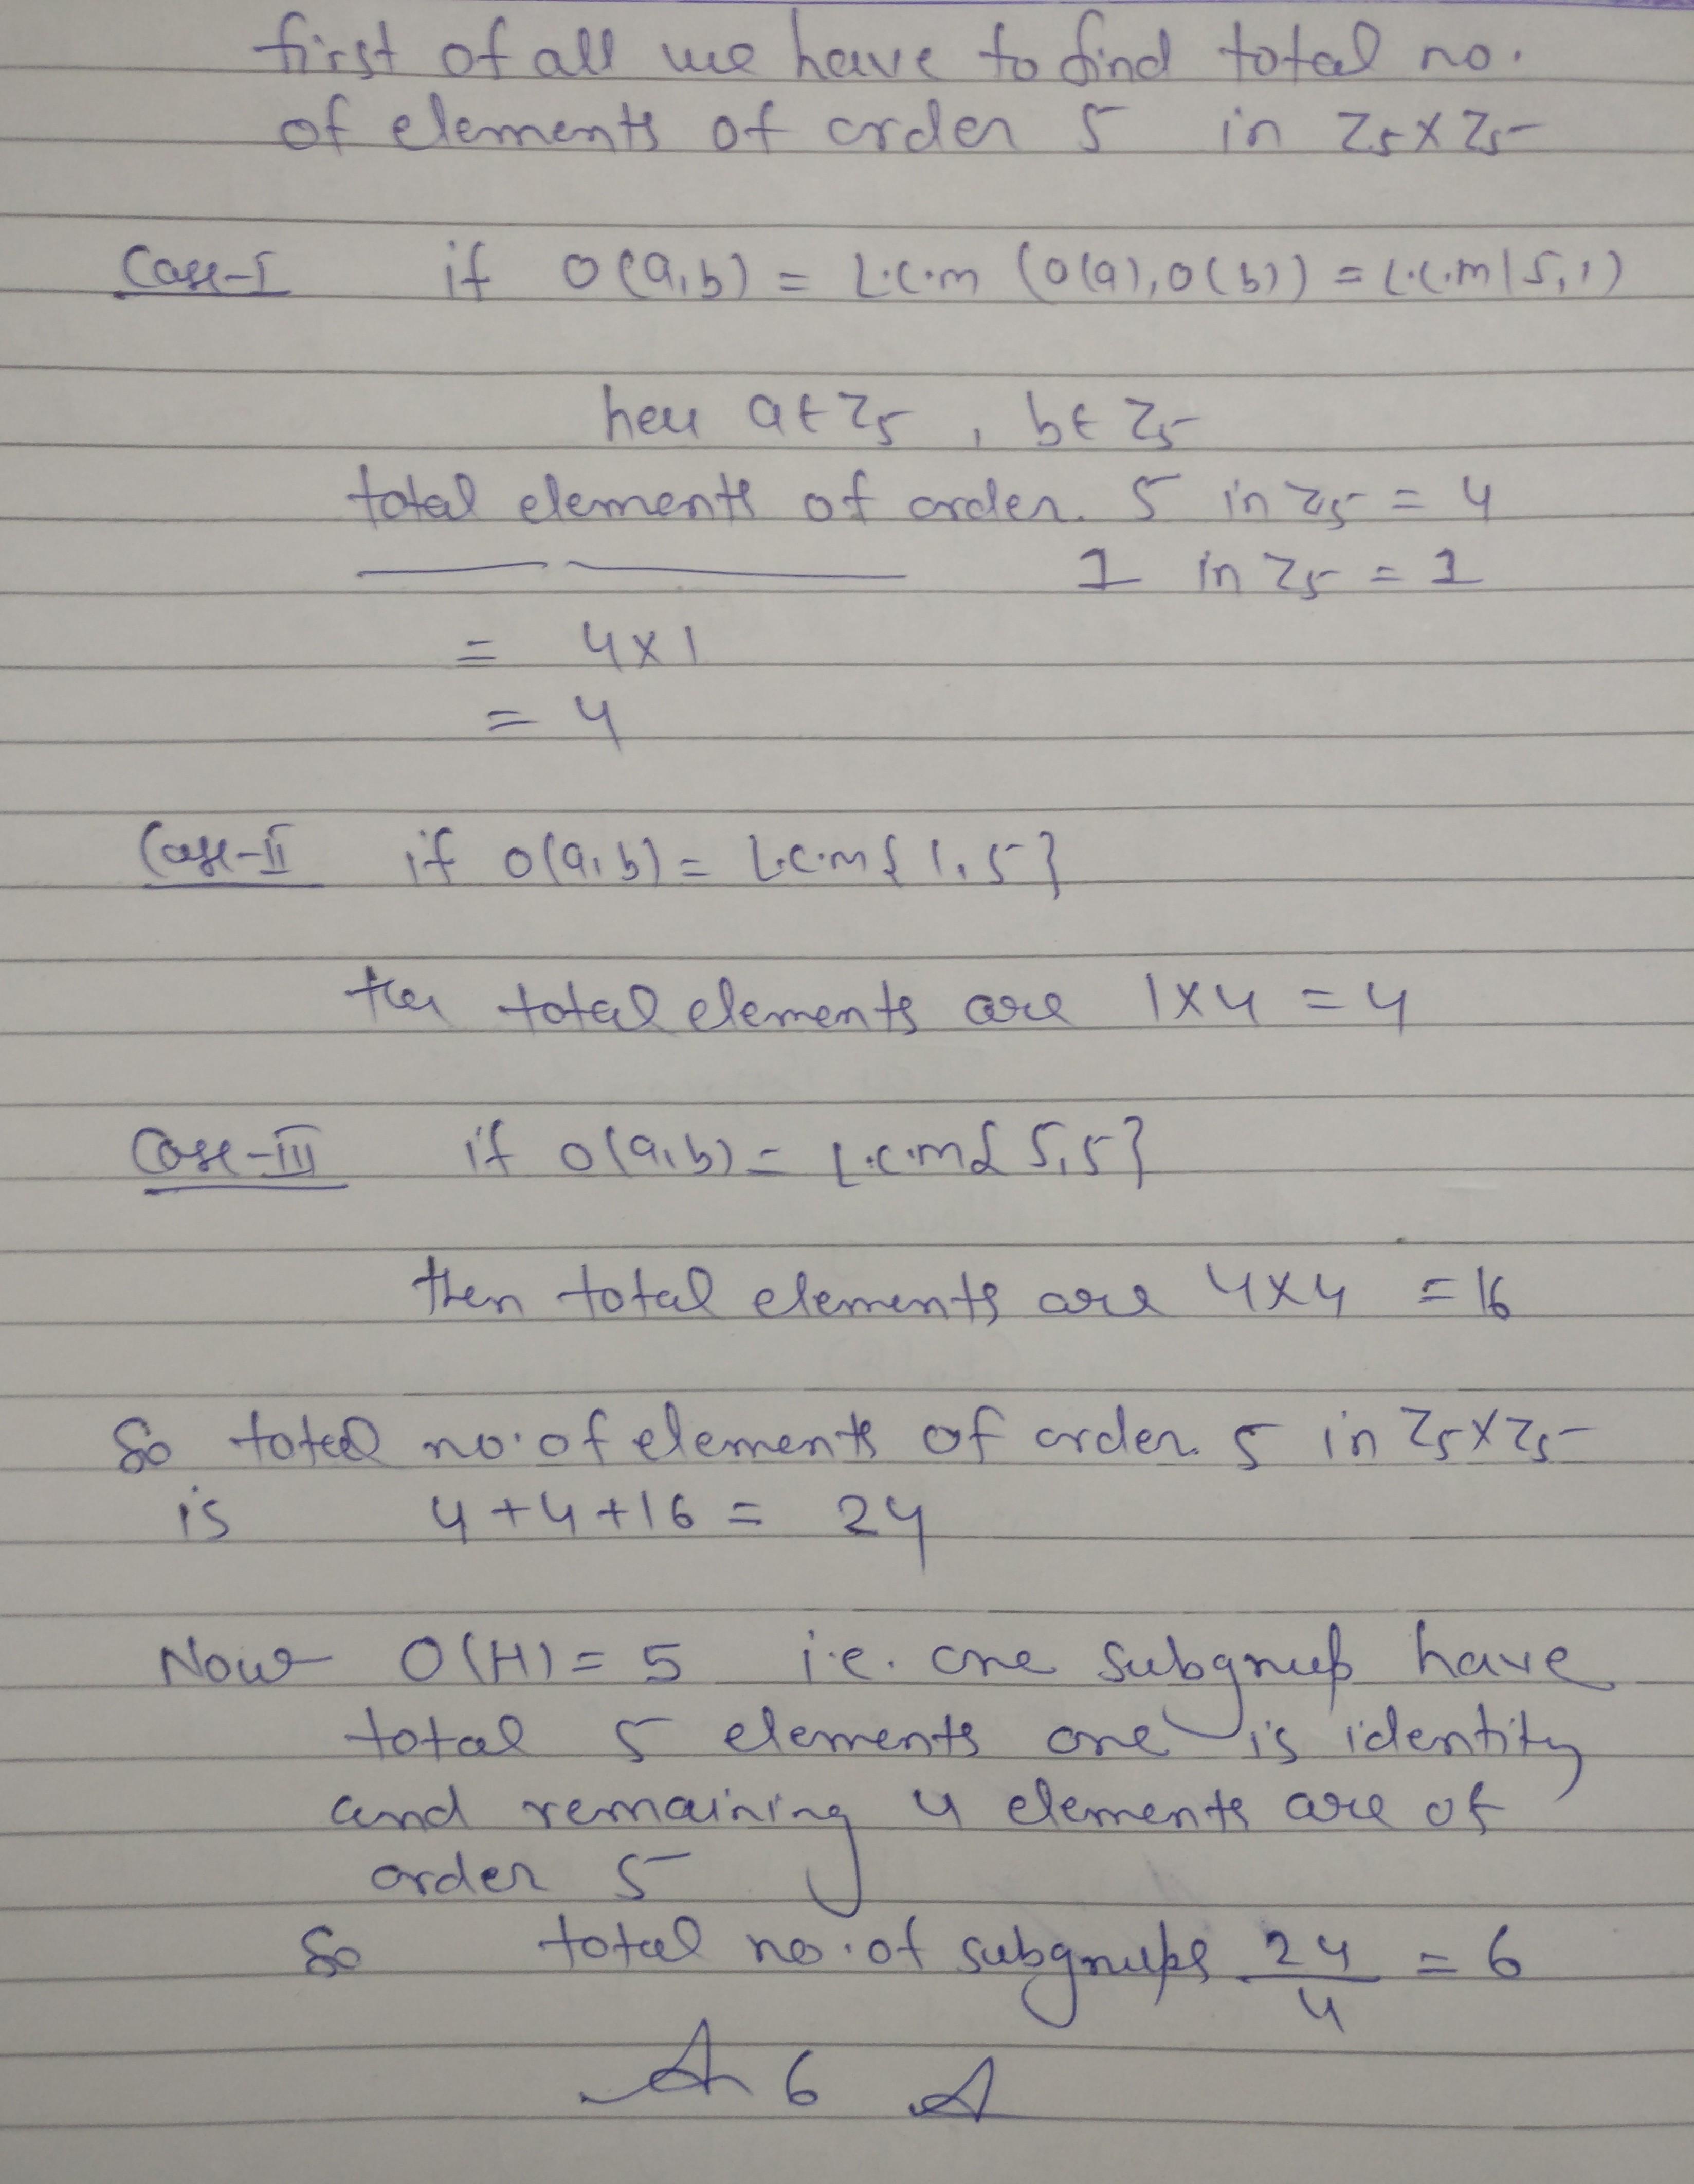 first of all we have to find total no.
of elements of order 5 in Z5 x Z5
Case-I if O(a,b) = L.C.m (O(a), O(b)) = L.C.m(5,1)
here a ∈ Z5 , b ∈ Z5
total elements of order 5 in Z5 = 4
1 in Z5 = 1
= 4x1
= 4
Case-II if O(a,b) = L.C.m{1,5}
then total elements are 1x4 = 4
Case-III if O(a,b) = L.C.m{5,5}
then total elements are 4x4 = 16
So total no. of elements of order 5 in Z5 x Z5
is 4+4+16 = 24
Now O(H) = 5 i.e. one subgroup have
total 5 elements one is identity
and remaining 4 elements are of
order 5
So total no. of subgroups 24/4 = 6
A 6 A